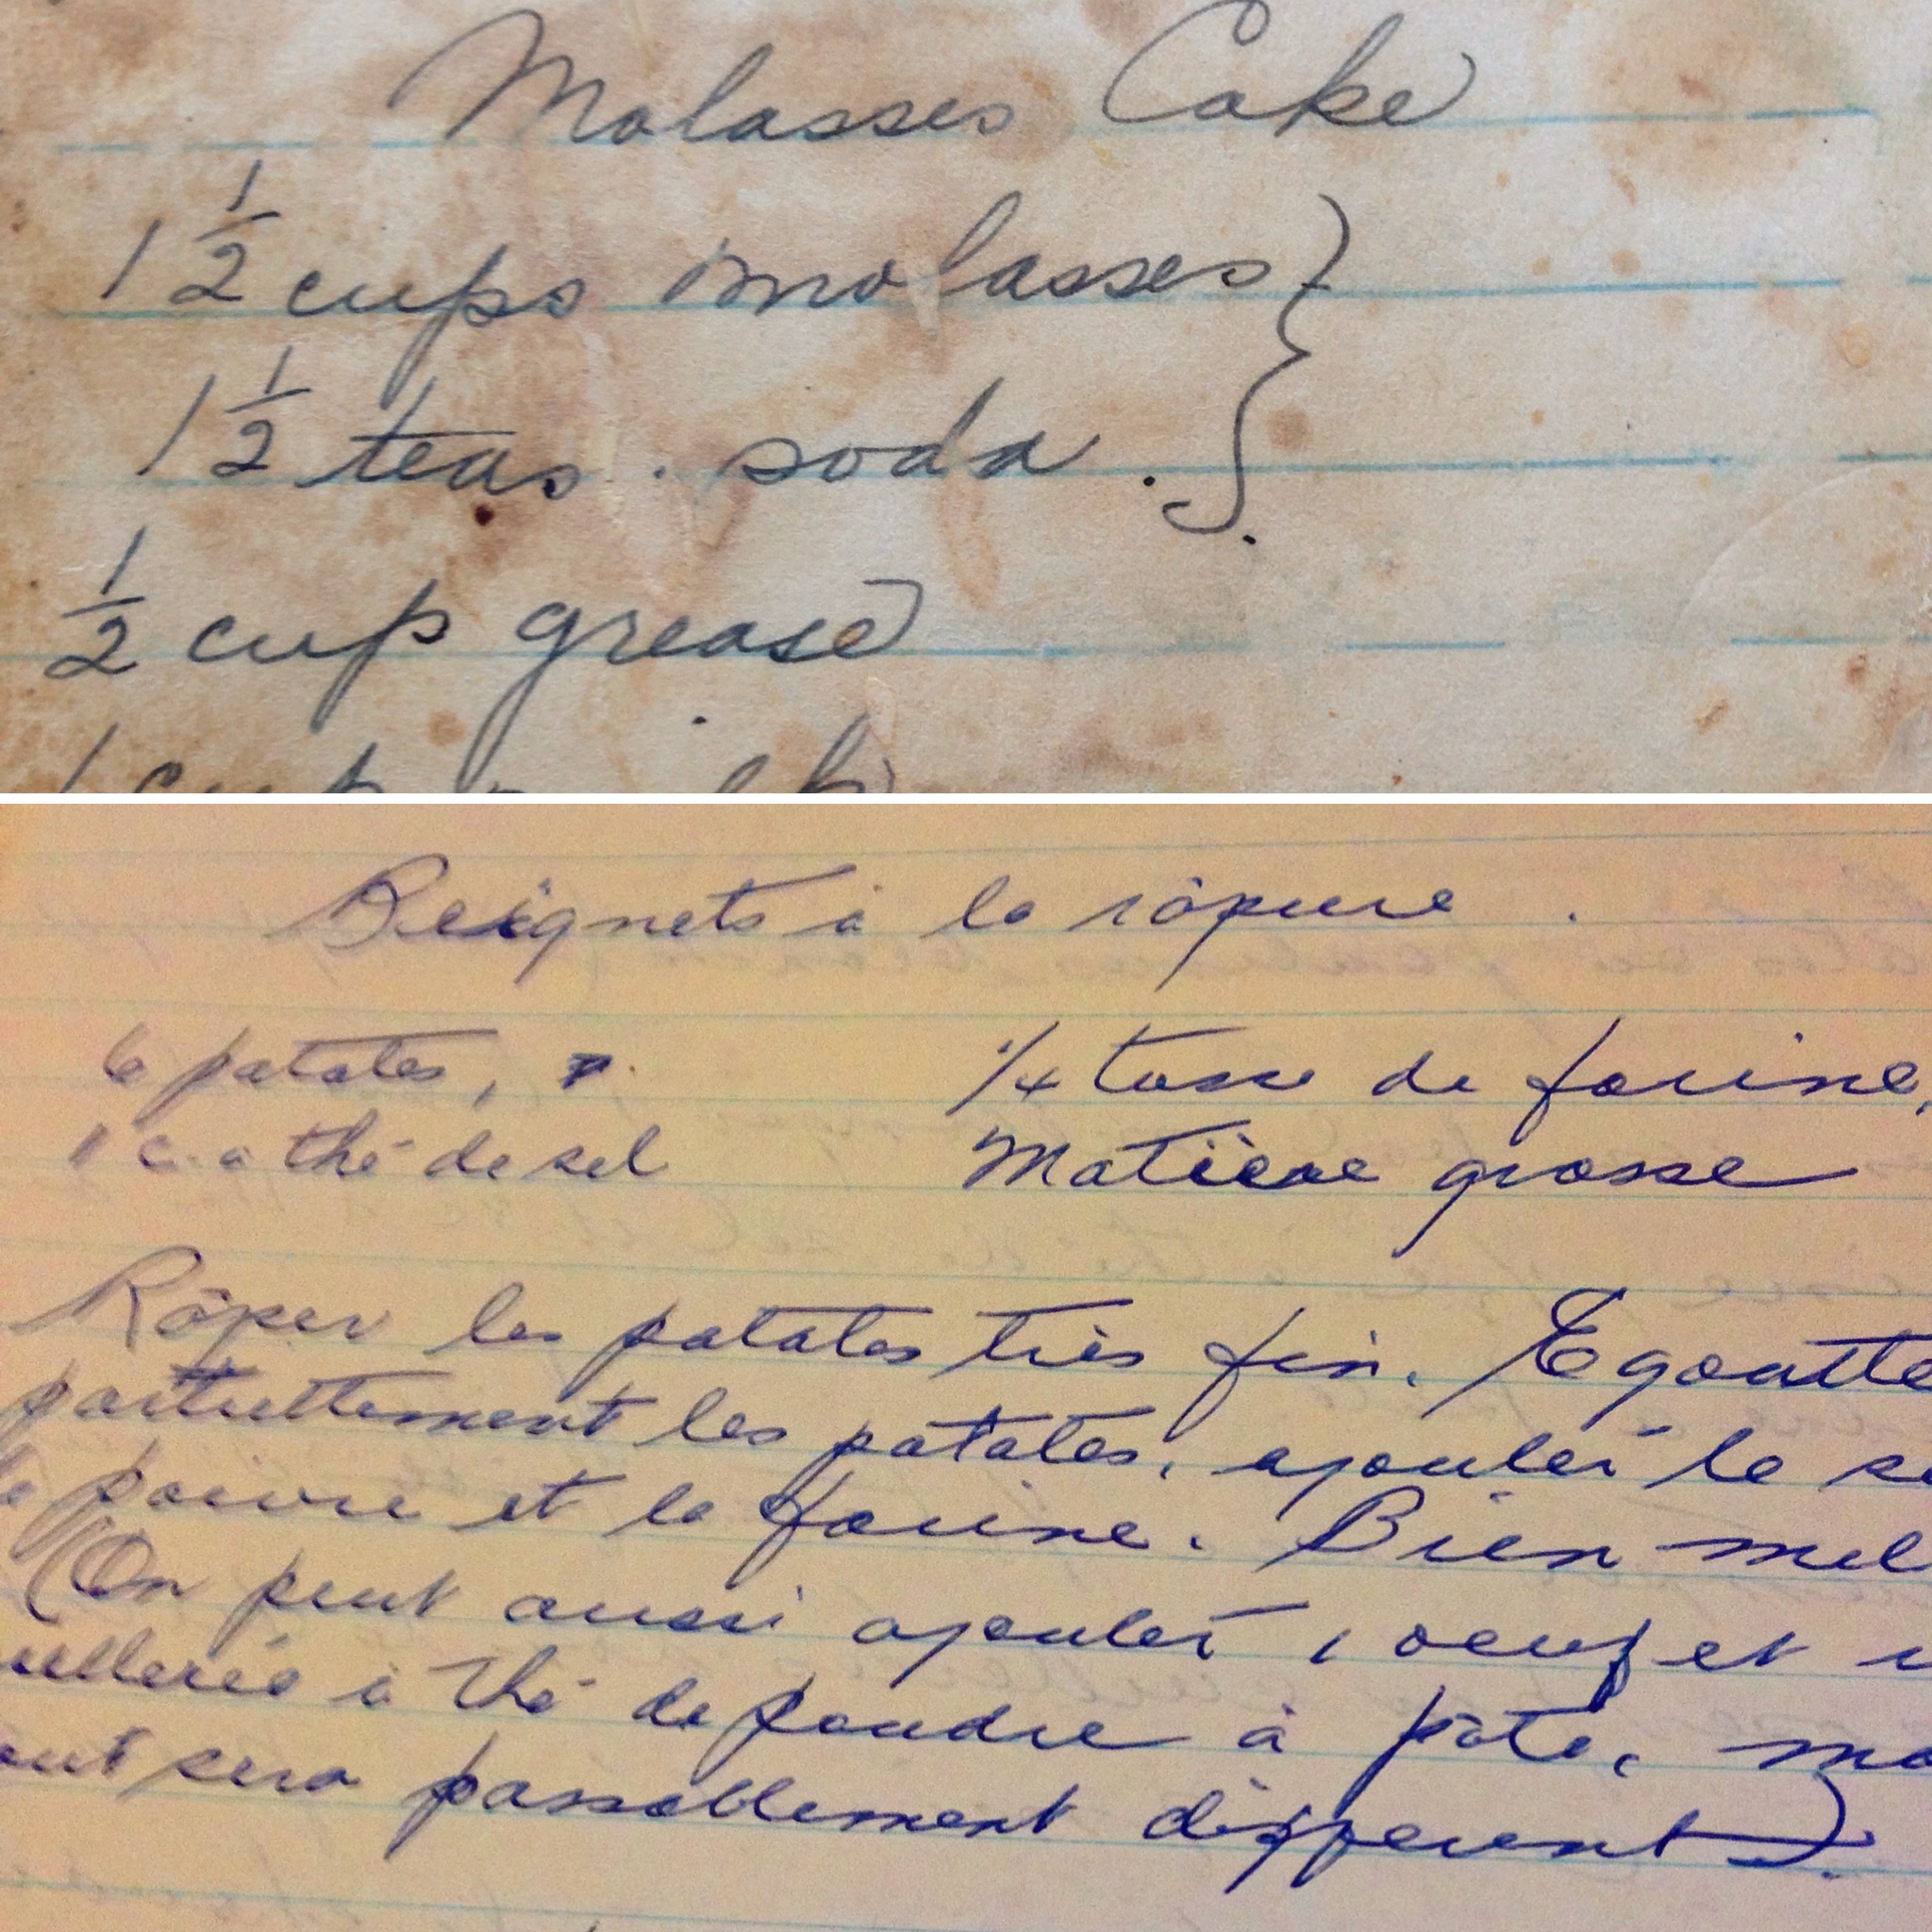 Molasses Cake
1 1/2 cups molasses }
1 1/2 teas. soda. }
1/2 cup grease
1 cup milk
Beignets à la râpure.
6 patates, 1/4 tasse de farine,
1 c. a thé de sel Matière grasse
Râper les patates très fin. Egoutte
les patates, ajouter le se
poivre et la farine. Bien mel
(On peut aussi ajouter 1 oeuf et u
uillerée à thé de poudre à pâte, ma
out sera passablement différent).